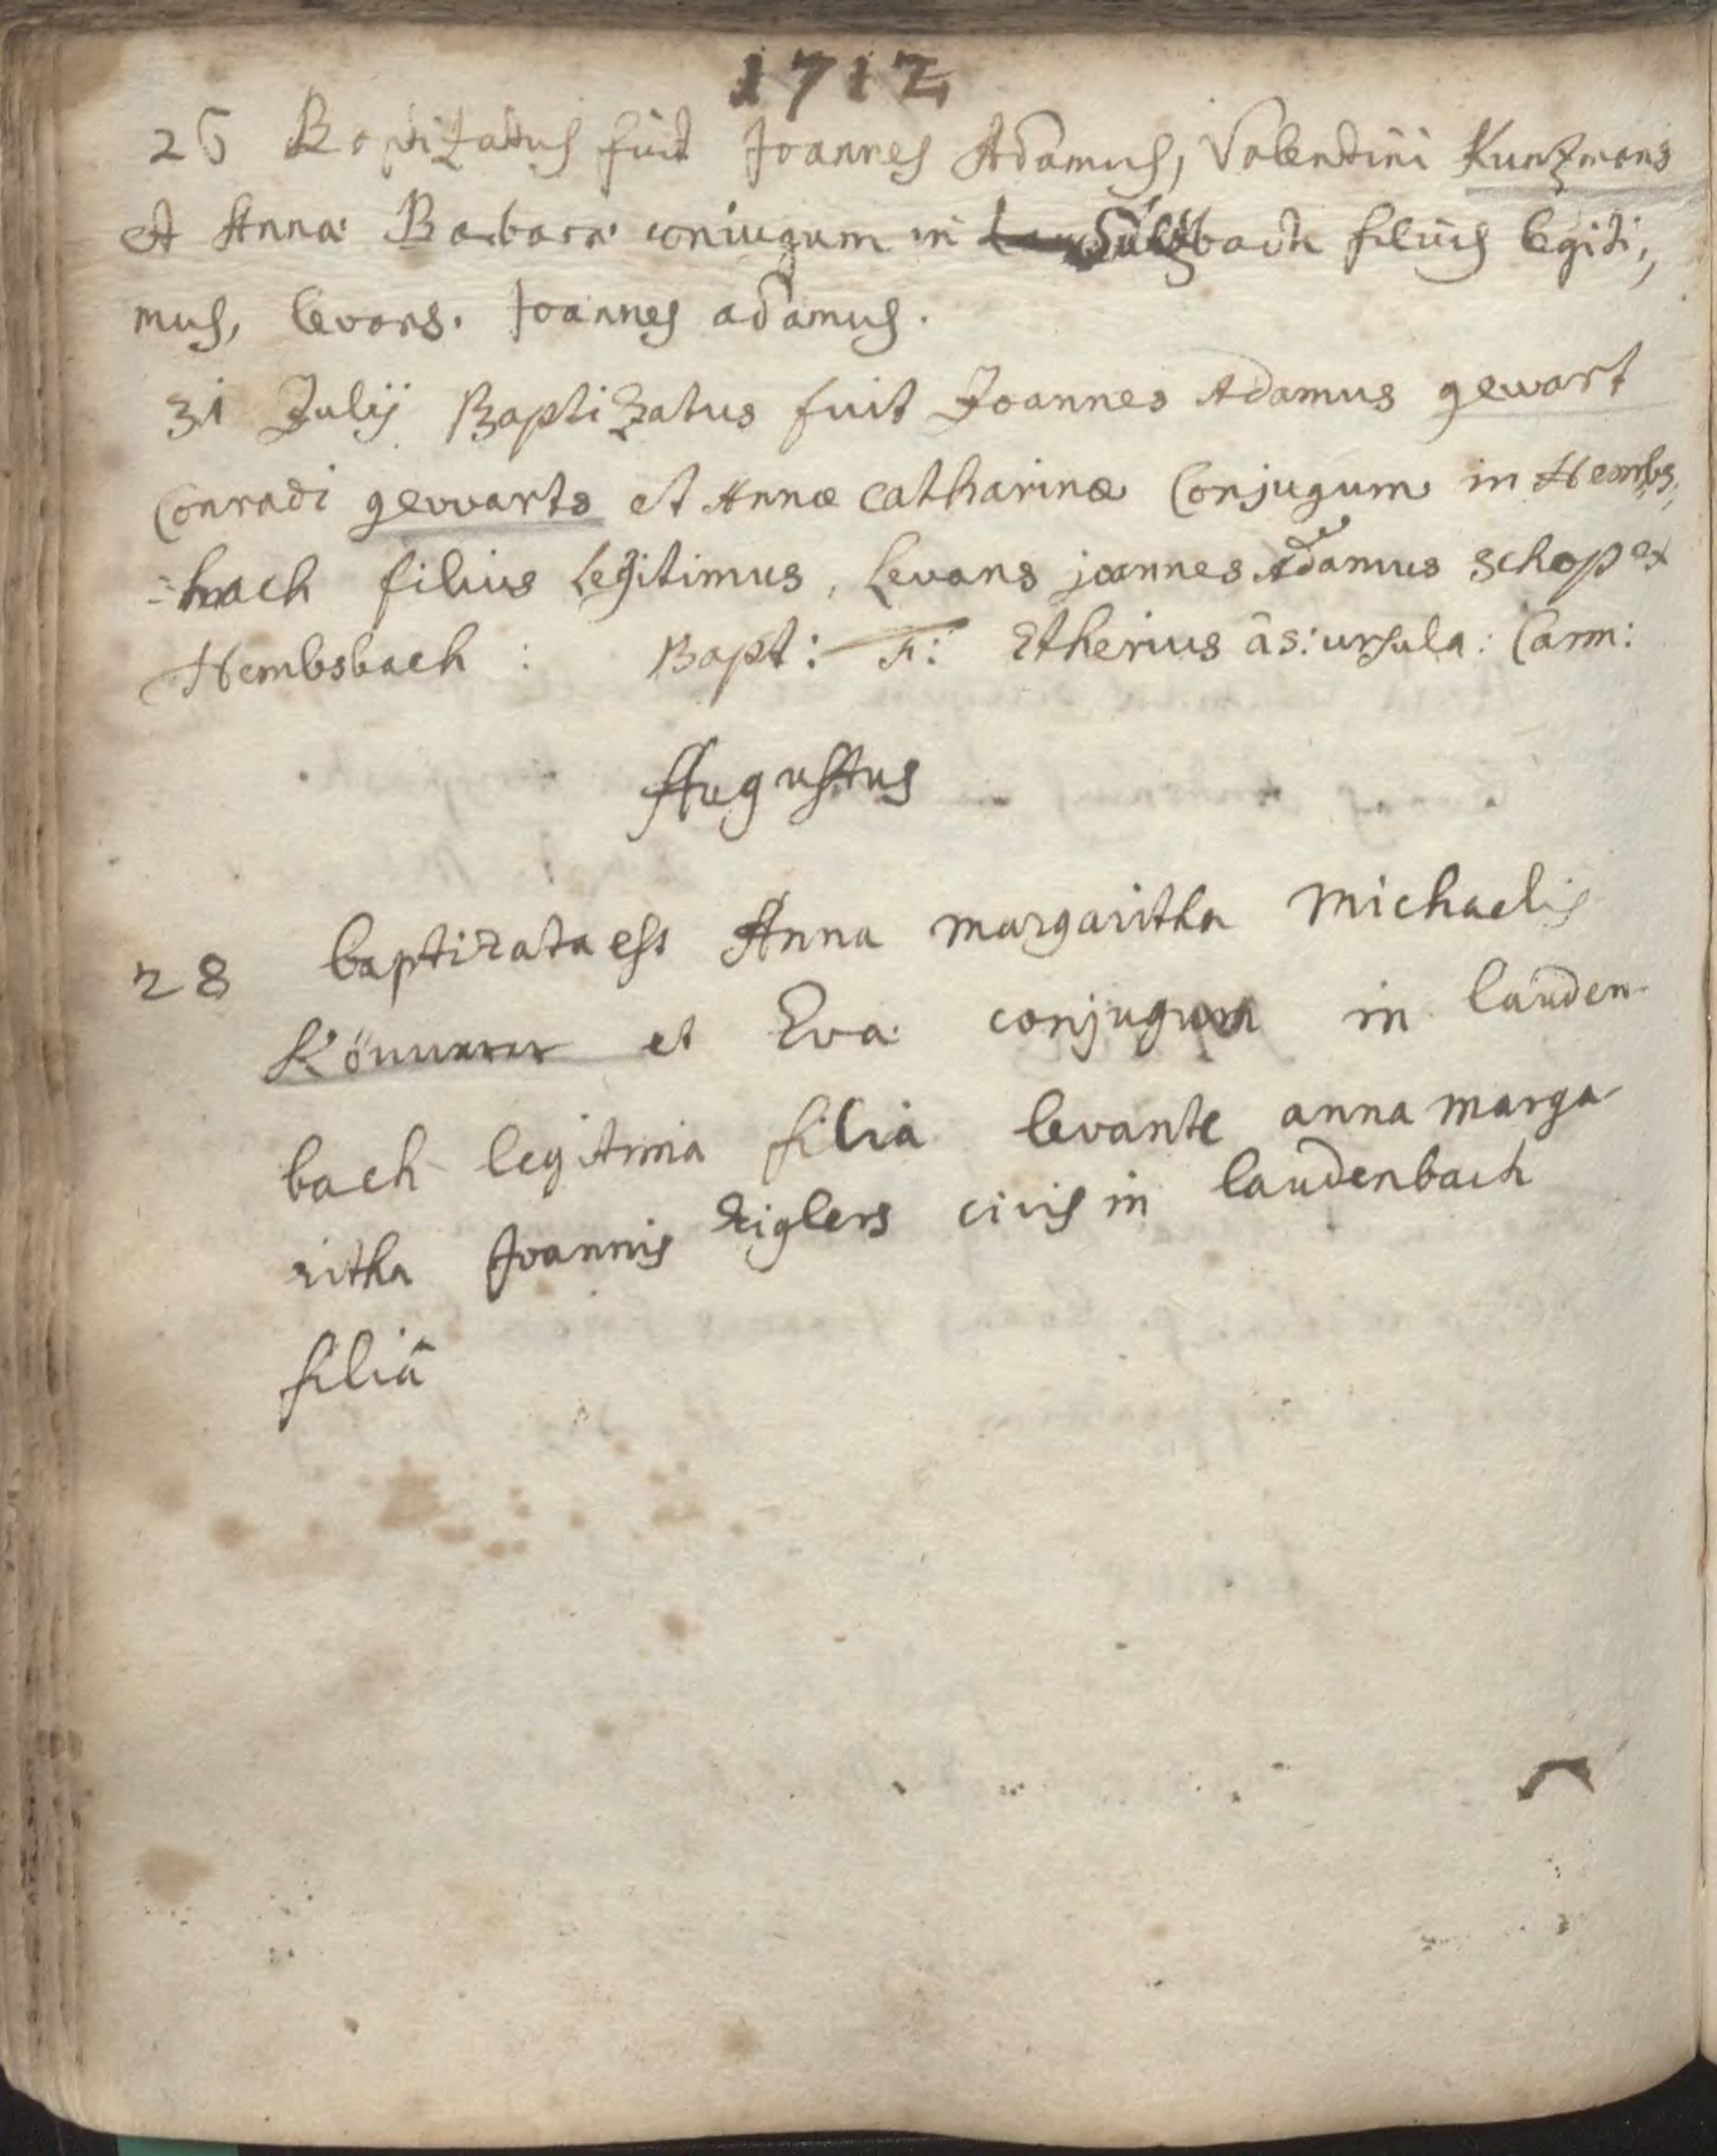 1712
25 Baptizatus fuit Joannes Adamus, Valentini Kunzmans
et Anna Barbara coniugum in Sulsbach filius legiti,,
mus, levans. Joannes adamus.
31 Julij Baptizatus fuit Joannes Adamus gewart
Conradi gewarts et Annæ Catharinæ Conjugum in Hembs,,
=bach filius Legitimus, Levans joannes Adamus schop ex
Hembsbach : Bapt: F: Etherius âs: ursula: Carm:
Augustus
28 baptizata est Anna margaritha Michaelis
et Eva conjugum in lauden-
bach legitima filia levante anna marga-
ritha Joannis ziglers civis in laudenbach
filiâ